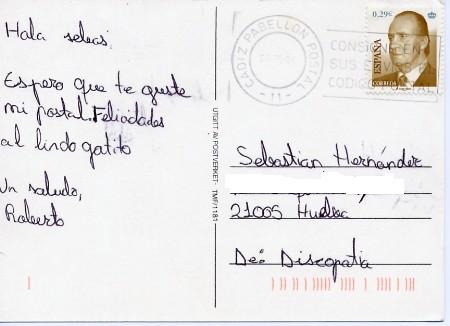 Hala sebas.
Espero que te guste
mi postal. Felicidades
al lindo gatito
Un saludo,
Roberto
UTGITT AV POSTVERKET-
0,29€
ESPAÑA
CORREOS
CADIZ PABELLON POSTAL
- 11 -
CONSIGNE EN
SUS ENVIOS
CODIGO POSTAL
Sebastian Hernández
21005 Huelva
De: Discopatia